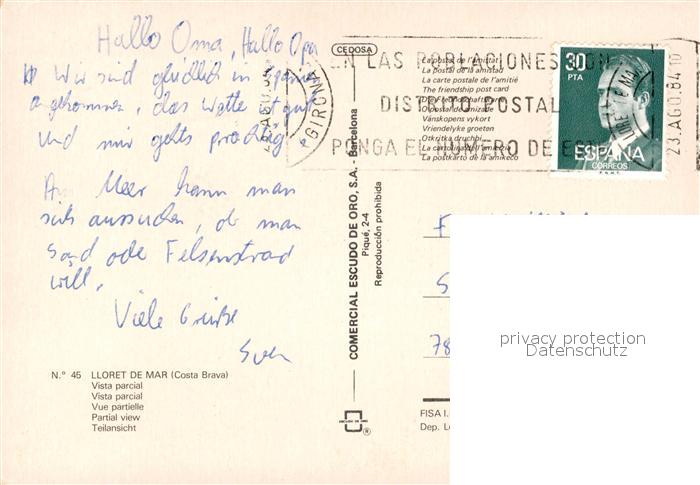 Hallo Oma, Hallo Opa
Wir sind glücklich in Spanien
angekommen, das Wetter ist gut
und mir gehts prächtig
Am Meer kann man
sich aussuchen, ob man
Sand oder Felsenstrand
will.
Viele Grüße
Sven
N.° 45 LLORET DE MAR (Costa Brava)
Vista parcial
Vista parcial
Vue partielle
Partial view
Teilansicht
CEDOSA
COMERCIAL ESCUDO DE ORO, S.A. - Barcelona
Piqué, 2-4
Reproducción prohibida
ESCUDO DE ORO
®
La postal de l'amistat
La postal de la amistad
La carte postale de l'amitié
The friendship post card
La postal de amizade
Vänskapens vykort
Vriendelyke groeten
Otkritka druchbi
La postkarto de la amikeco
EN LAS POBLACIONES CON
DISTRITO POSTAL
PONGA EL NUMERO DE
GIRONA
23 AGO. 84
30
PTA
ESPAÑA
CORREOS
F
S
78
FISA I.
Dep. L
privacy protection
Datenschutz